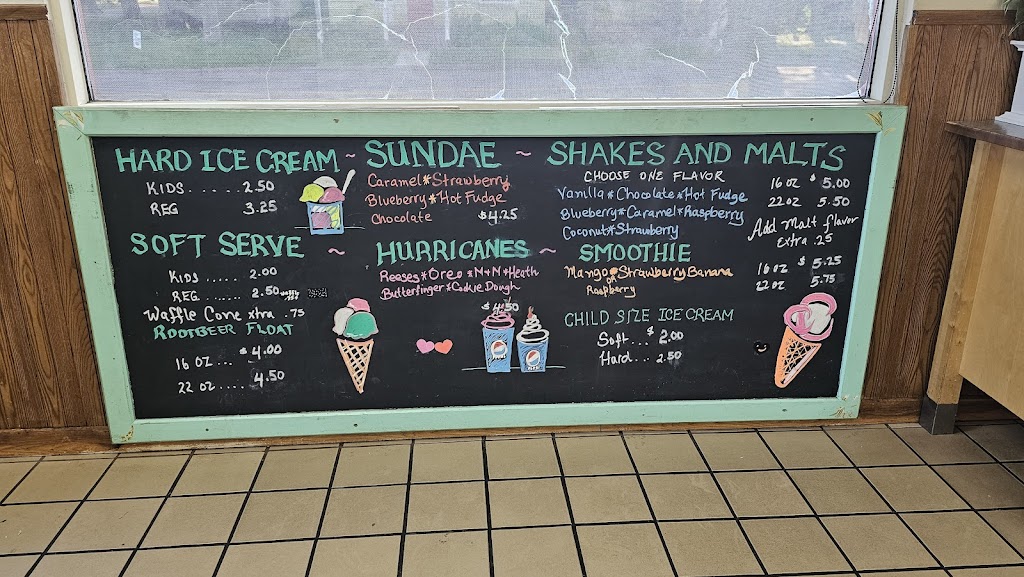 HARD ICE CREAM ~
KIDS ...... 2.50
REG 3.25
SOFT SERVE ~
KIDS ...... 2.00
REG ....... 2.50
Waffle Cone xtra .75
ROOTBEER FLOAT
16 OZ ... $4.00
22 OZ ..... 4.50
SUNDAE ~
Caramel*Strawberry
Blueberry*Hot Fudge
Chocolate $4.25
HURRICANES ~
Reeses*Oreo*M+M*Heath
Butterfinger*Cookie Dough
$4.50
SHAKES AND MALTS
CHOOSE ONE FLAVOR
Vanilla*Chocolate*Hot Fudge
Blueberry*Caramel*Raspberry
Coconut*Strawberry
16 OZ $5.00
22 OZ 5.50
Add Malt flavor
Extra .25
SMOOTHIE
Mango*Strawberry Banana
or
Raspberry
16 OZ $5.25
22 OZ 5.75
CHILD SIZE ICE CREAM
Soft... $2.00
Hard... 2.50